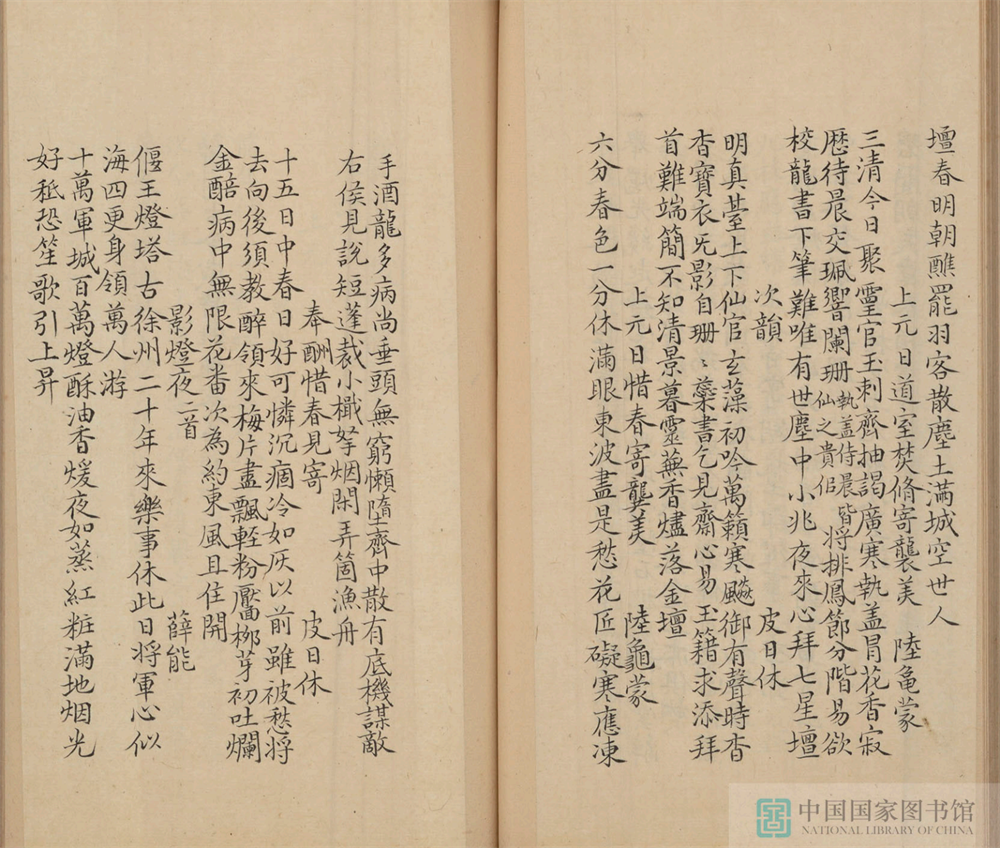 壇春明朝醮罷羽客散塵土滿城空世人
上元日道室焚脩寄襲美 陸龜蒙
三清今日聚靈官玉刺齊抽謁廣寒執盖冐花香寂
歷待晨交珮響闌珊執盖侍晨皆仙之貴侶將排鳳節分階易欲
校龍書下筆難唯有世塵中小兆夜來心拜七星壇
次韻 皮日休
明真臺上下仙官玄藻初吟萬籟寒飈御有聲時杳
杳寳衣无影自珊〻蘂書乞見齋心易玉籍求添拜
首難端簡不知清景暮靈蕪香燼落金壇
上元日惜春寄龔美 陸龜蒙
六分春色一分休滿眼東波盡是愁花匠礙寒應凍
手酒龍多病尚垂頭無窮懶墮齊中散有底機謀敵
右侯見說短蓬裁小檝拏烟閑弄箇漁舟
奉酬惜春見寄 皮日休
十五日中春日好可憐沉痼冷如灰以前雖被愁將
去向後須教醉領來梅片盡飄輊粉靨栁芽初吐爛
金醅病中無限花畨次為約東風且住開
影燈夜二首 薛能
偃王燈塔古徐州二十年來樂事休此日將軍心似
海四更身領萬人游
十萬軍城百萬燈酥油香煖夜如蒸紅粧滿地烟光
好秖恐笙歌引上昇
中国国家图书馆
NATIONAL LIBRARY OF CHINA